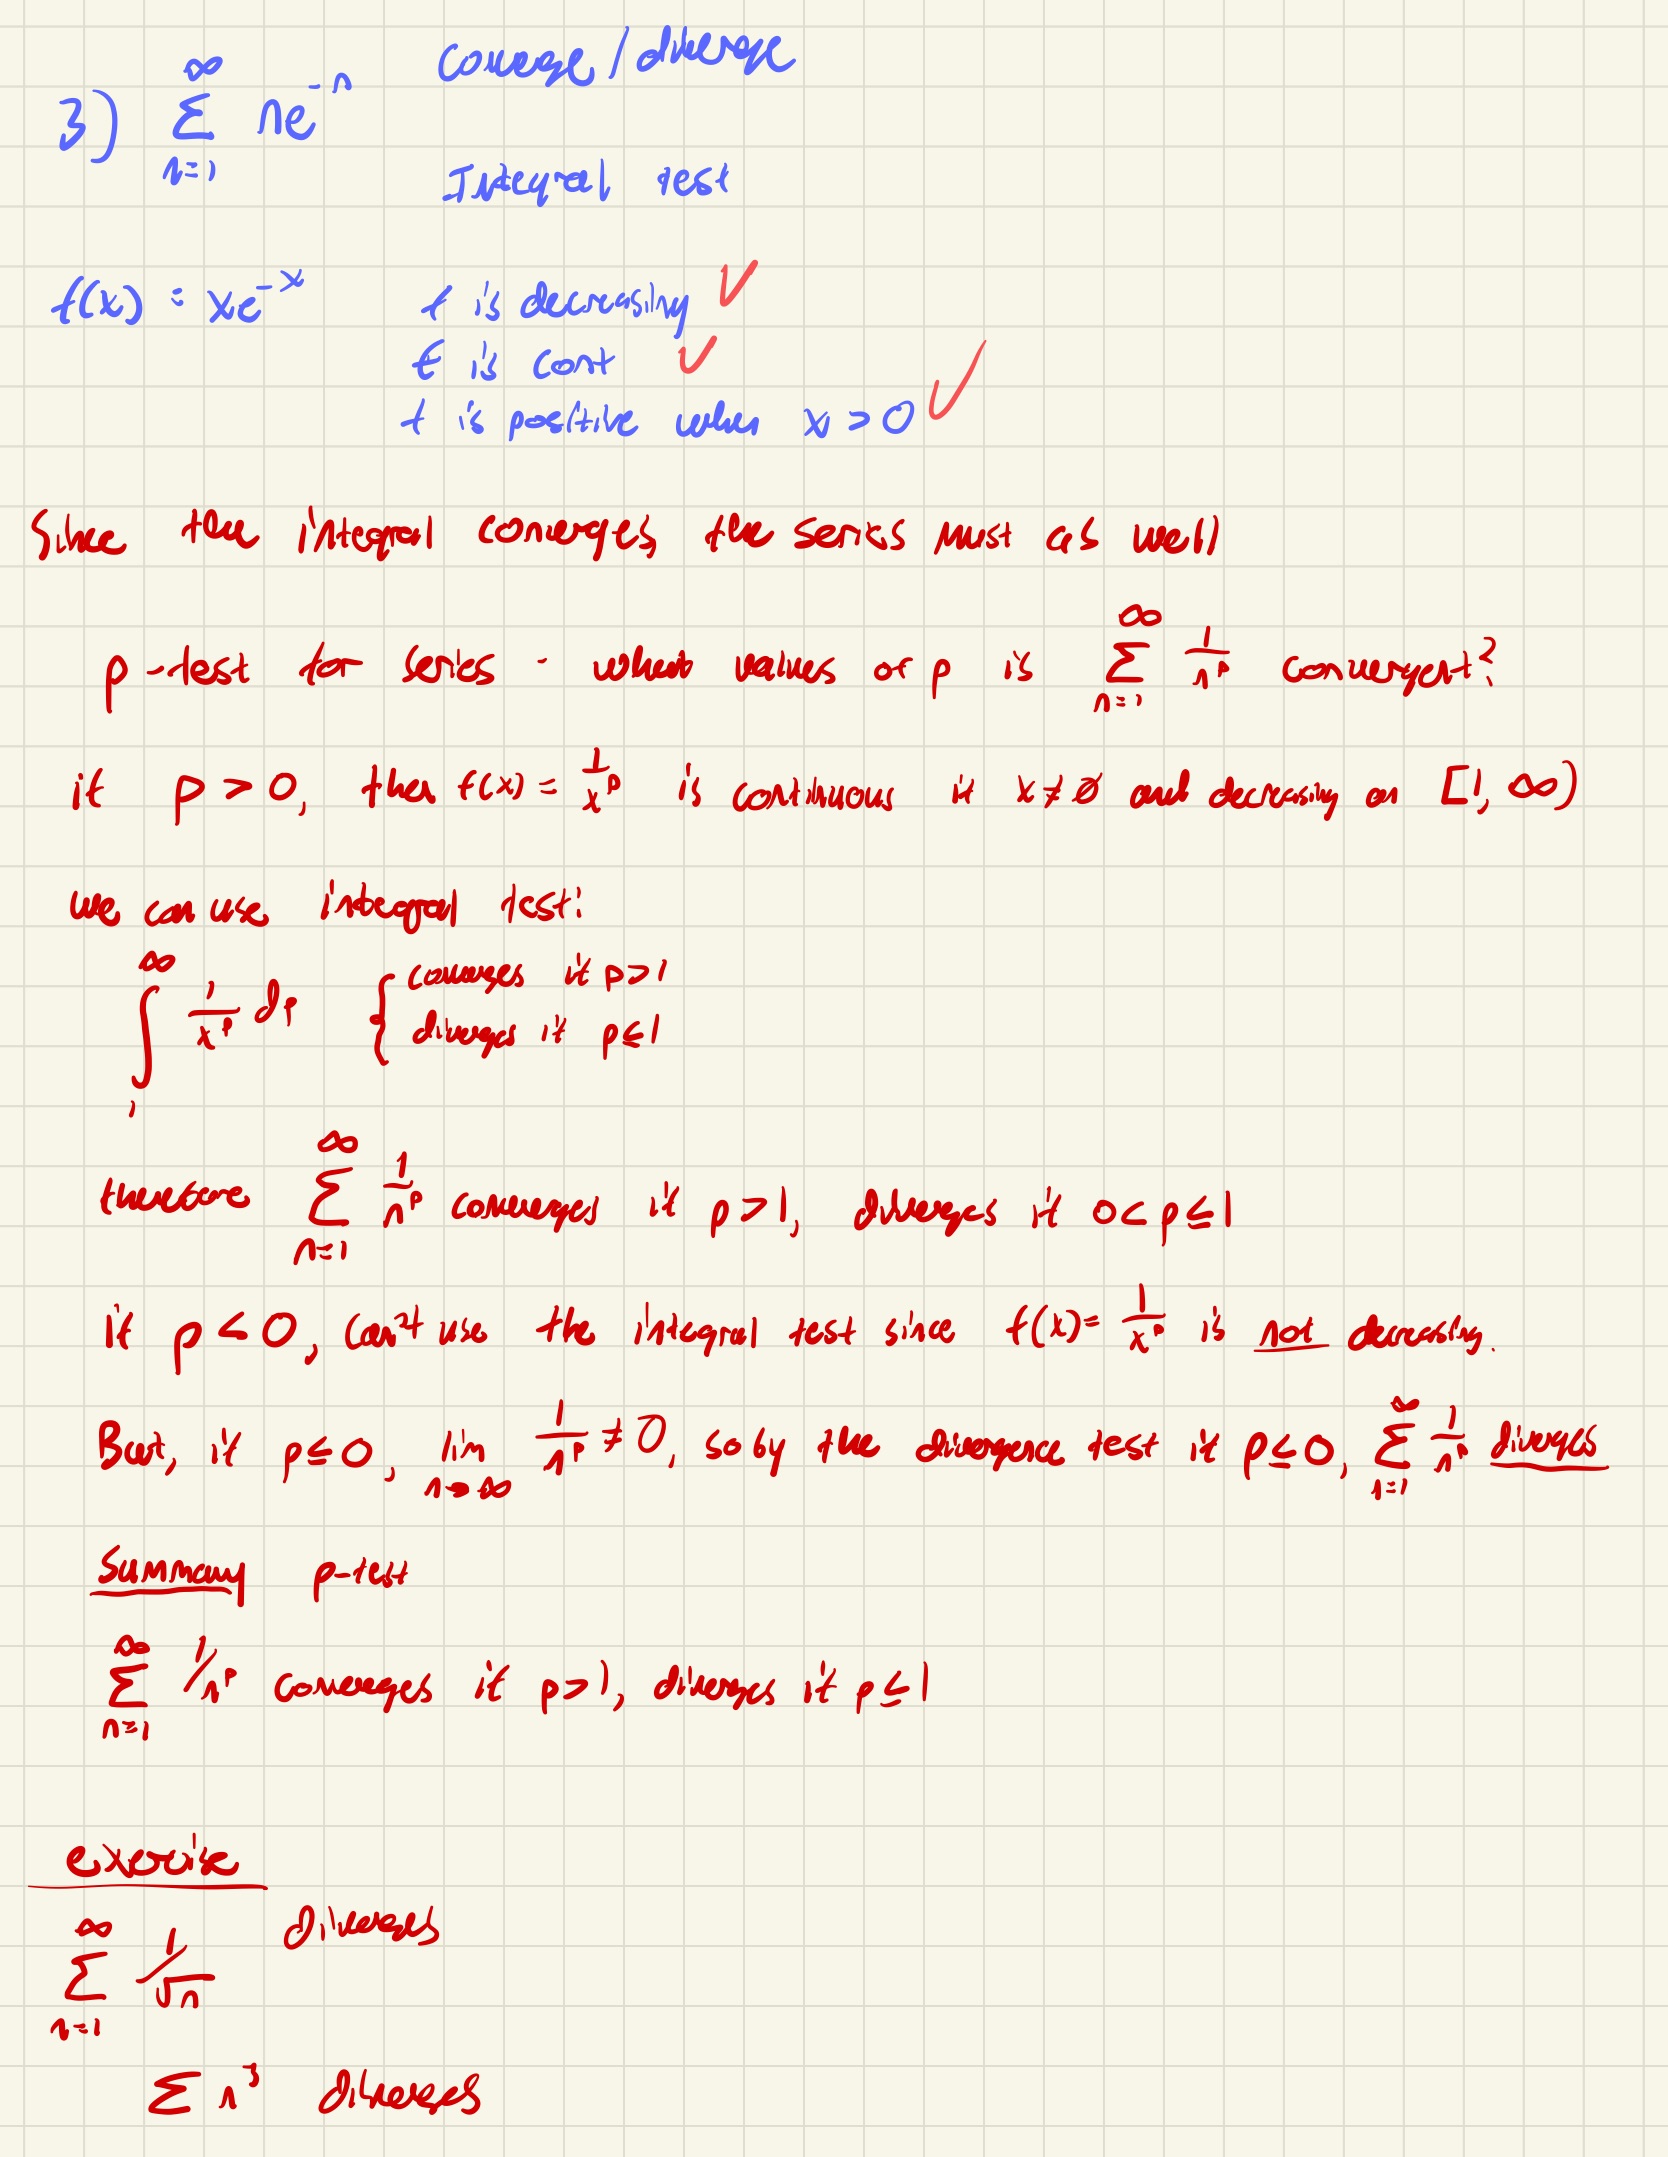 3) ∞ Σ n=1 ne^-n converge/diverge
Integral test
f(x) = xe^-x f is decreasing ✓
f is cont ✓
f is positive when x > 0 ✓
Since the integral converges, the series must as well
p-test for series - what values of p is ∞ Σ n=1 1/n^p convergent?
if p > 0, then f(x) = 1/x^p is continuous if x ≠ 0 and decreasing on [1, ∞)
we can use integral test:
∞ ∫ 1 1/x^p dp { converges if p>1
diverges if p≤1
therefore ∞ Σ n=1 1/n^p converges if p>1, diverges if 0<p≤1
if p<0, can't use the integral test since f(x)= 1/x^p is not decreasing.
But, if p≤0, lim n→∞ 1/n^p ≠ 0, so by the divergence test if p≤0, ∞ Σ n=1 1/n^p diverges
Summary p-test
∞ Σ n=1 1/n^p converges if p>1, diverges if p≤1
exercise
∞ Σ n=1 1/√n diverges
Σ n^3 diverges